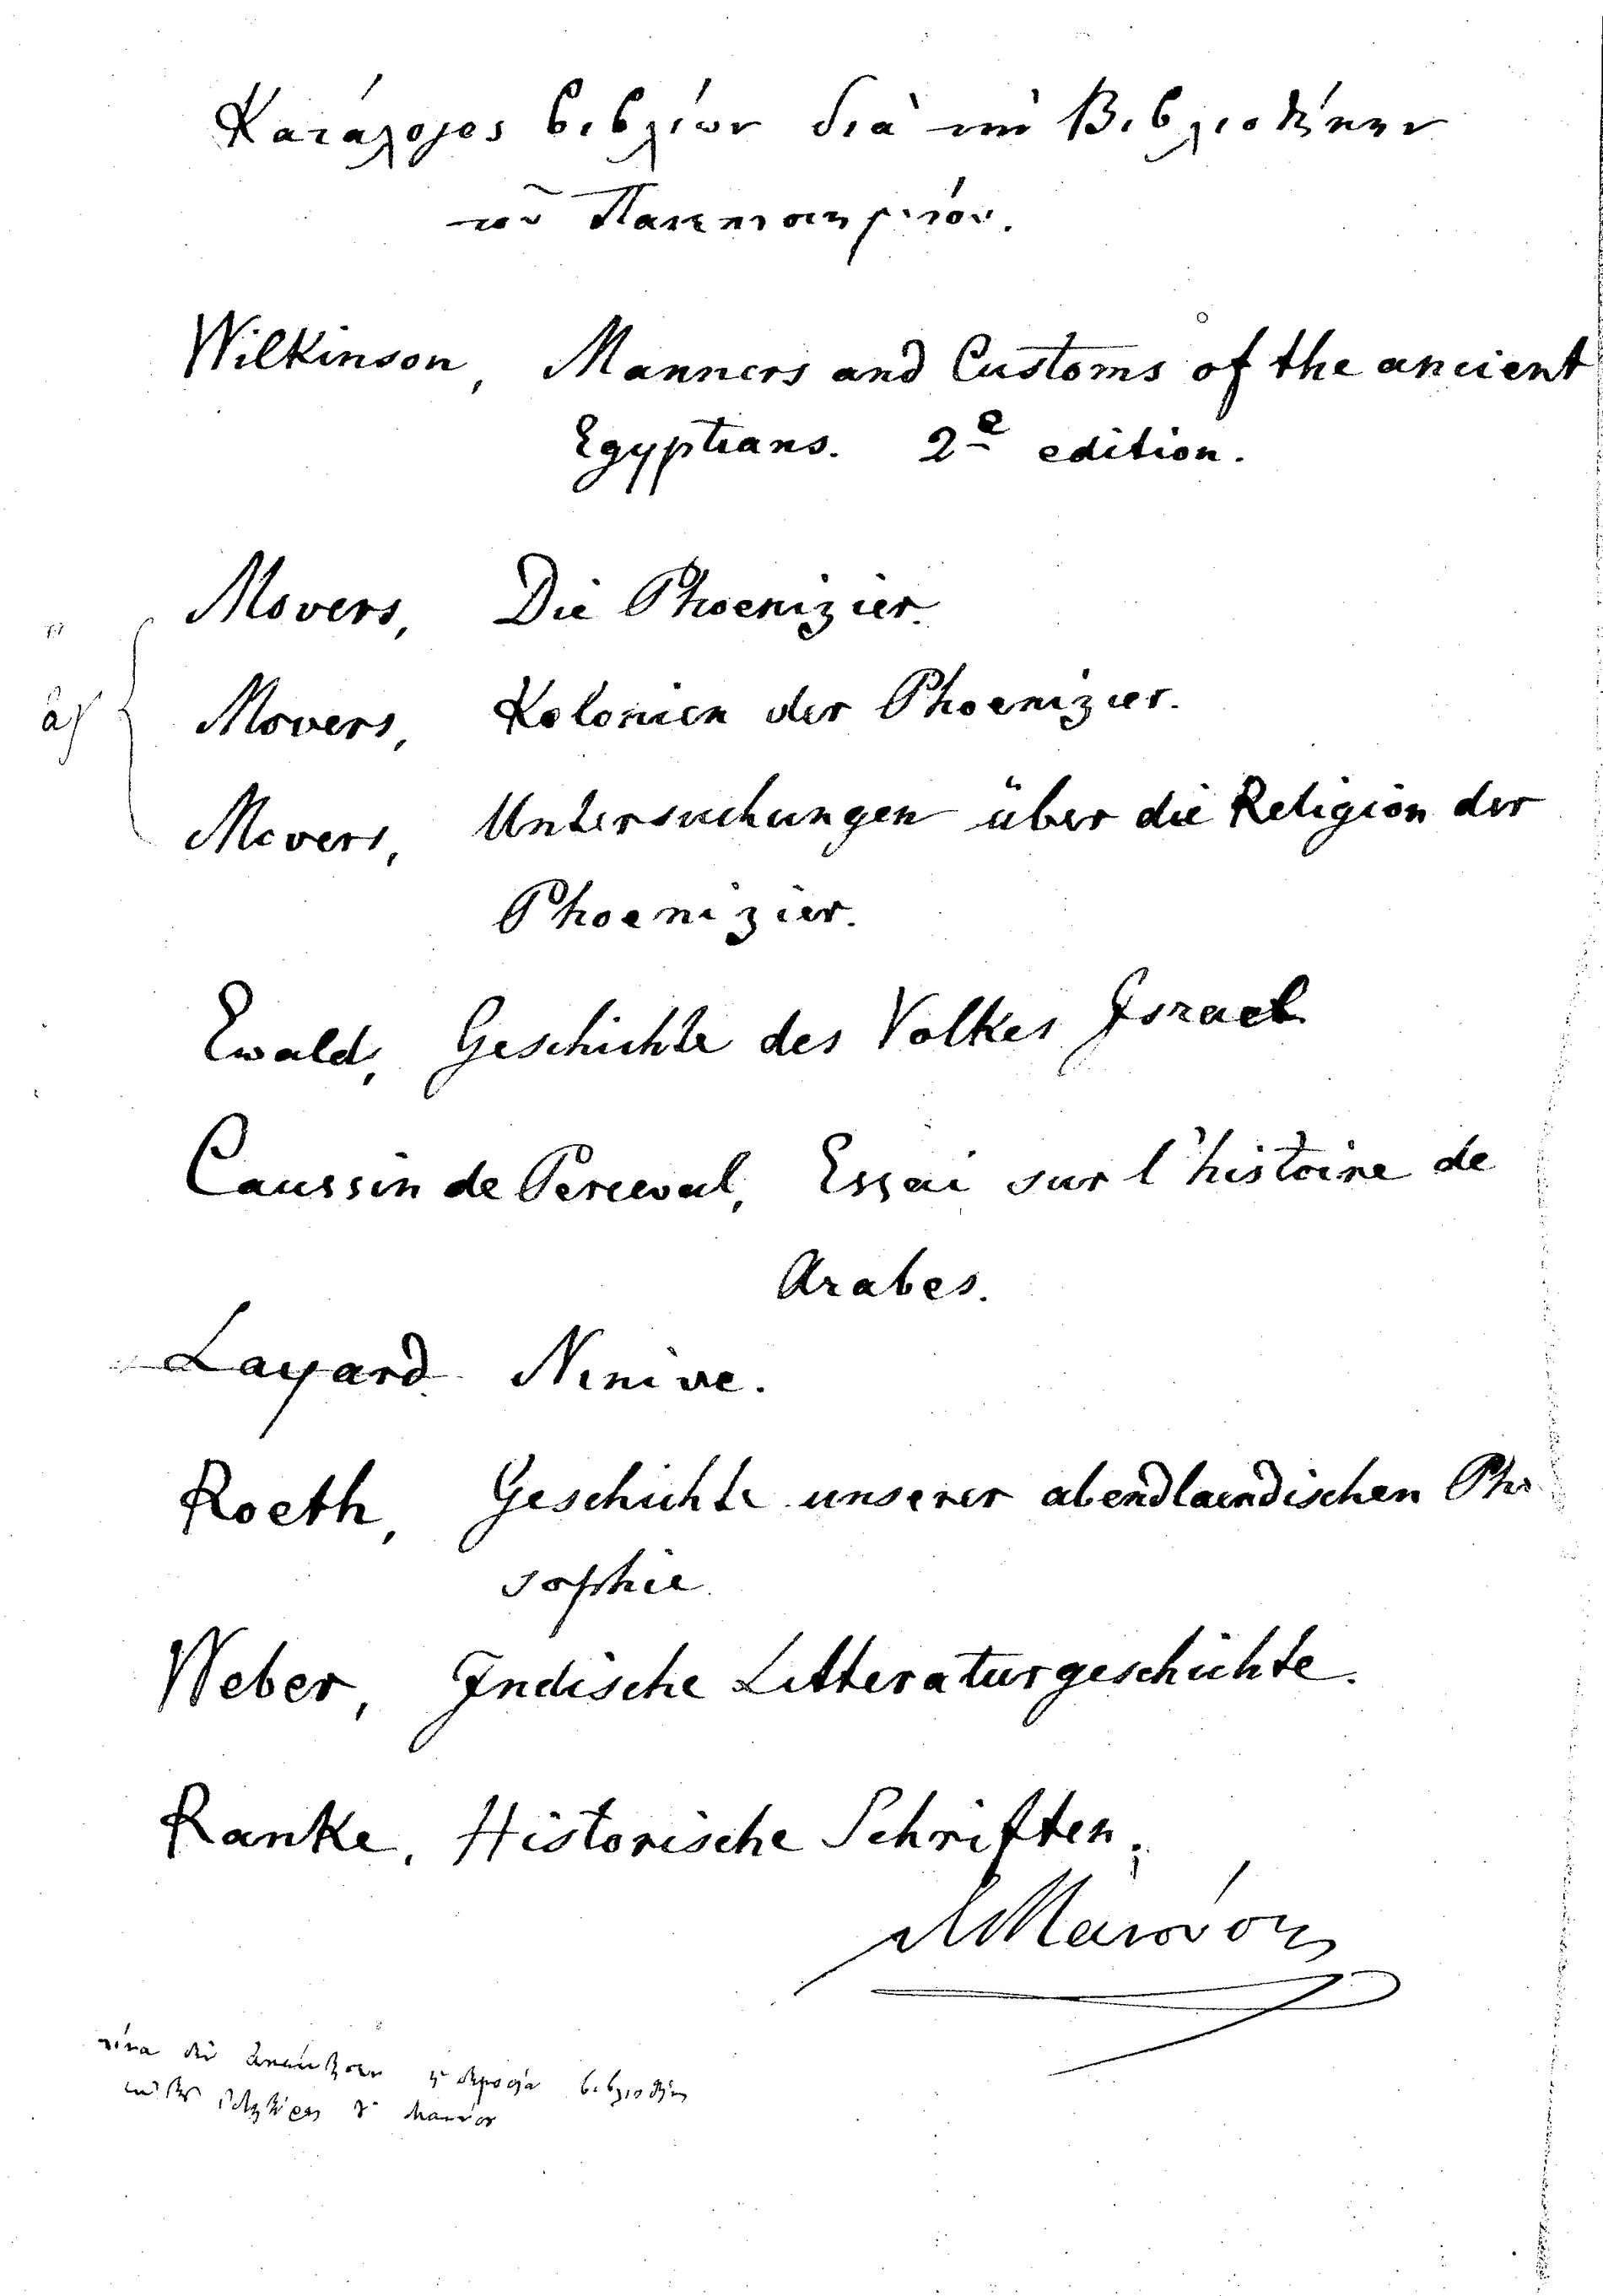 Κατάλογος βιβλίων διὰ τὴν Βιβλιοθήκην
τοῦ Πανεπιστημίου.
Wilkinson, Manners and Customs of the ancient
Egyptians. 2e edition.
Movers, Die Phoenizier.
Movers, Kolonien der Phoenizier.
Movers, Untersuchungen über die Religion der
Phoenizier.
Ewald, Geschichte des Volkes Israel
Caussin de Perceval, Essai sur l'histoire de
Arabes.
Layard Ninive.
Roeth, Geschichte unserer abendlaendischen Philo
sophie.
Weber, Indische Litteraturgeschichte.
Ranke, Historische Schriften.